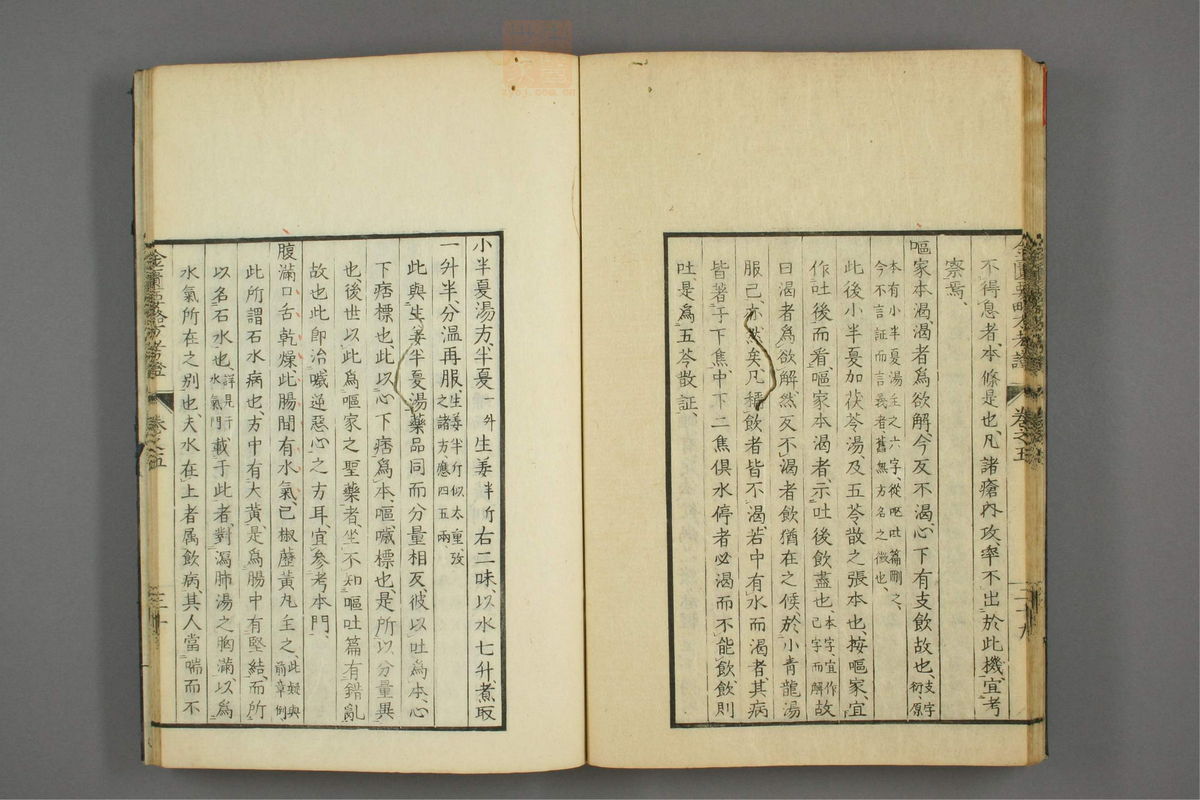 不得息者、本條是也、凡諸瘡內攻、率不出於此機、宜考
察焉、
嘔家本渴、渴者爲欲解、今反不渴、心下有支飲故也、支字衍原
本有小半夏湯主之六字、從嘔吐篇刪之、
今不言証而言義者、舊無方名之徵也、
此後小半夏加茯苓湯及五苓散之張本也、按嘔家、宜
作吐後而看、嘔家本渴者、示吐後飲盡也、本字、宜作已字而解故
曰渴者爲欲解、然反不渴者飲猶在之候、於小青龍湯
服已、亦然矣、凡積飲者皆不渴、若中有水而渴者其病
皆著于下焦、中下二焦俱水停者必渴而不能飲、飲則
吐、是爲五苓散証、
金匱要略方考證 卷之五 二十九
小半夏湯方、半夏一升生姜半斤右二味、以水七升、煮取
一升半、分溫再服、生姜半斤似太重、攷之諸方、應四五兩
此與生姜半夏湯藥品同而分量相反、彼以吐爲本、心
下痞標也、此以心下痞爲本、嘔噦標也、是所以分量異
也後世以此爲嘔家之聖藥者、坐不知嘔吐篇有錯亂
故也此即治噦逆惡心之方耳、宜參考本門、
腹滿口舌乾燥、此腸間有水氣、已椒藶黃丸主之、此疑與前章倒
此所謂石水病也、方中有大黃、是爲腸中有堅結、而所
以名石水也、詳見于水氣門載于此者、對瀉肺湯之胸滿、以爲
水氣所在之別也、夫水在上者属飲病、其人當喘而不
金匱要略方考證 卷之五 三十